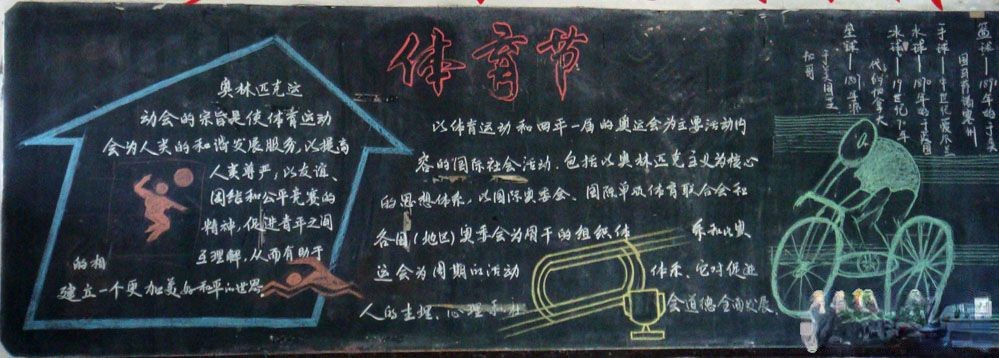 体育节
奥林匹克运
动会的宗旨是使体育运动
会为人类的和谐发展服务,以提高
人类尊严,以友谊、
团结和公平竞赛的
精神,促进青年之间
的相互理解,从而有助于
建立一个更加美好和平的世界。
以体育运动和四年一届的奥运会为主要活动内
容的国际社会活动.包括以奥林匹克主义为核心
的思想体系,以国际奥委会、国际单项体育联合会和
各国(地区)奥委会为骨干的组织体 系和以奥
运会为周期的活动 体系.它对促进
人的生理、心理和社 会道德全面发展.
篮球——1891年
水球——19世纪